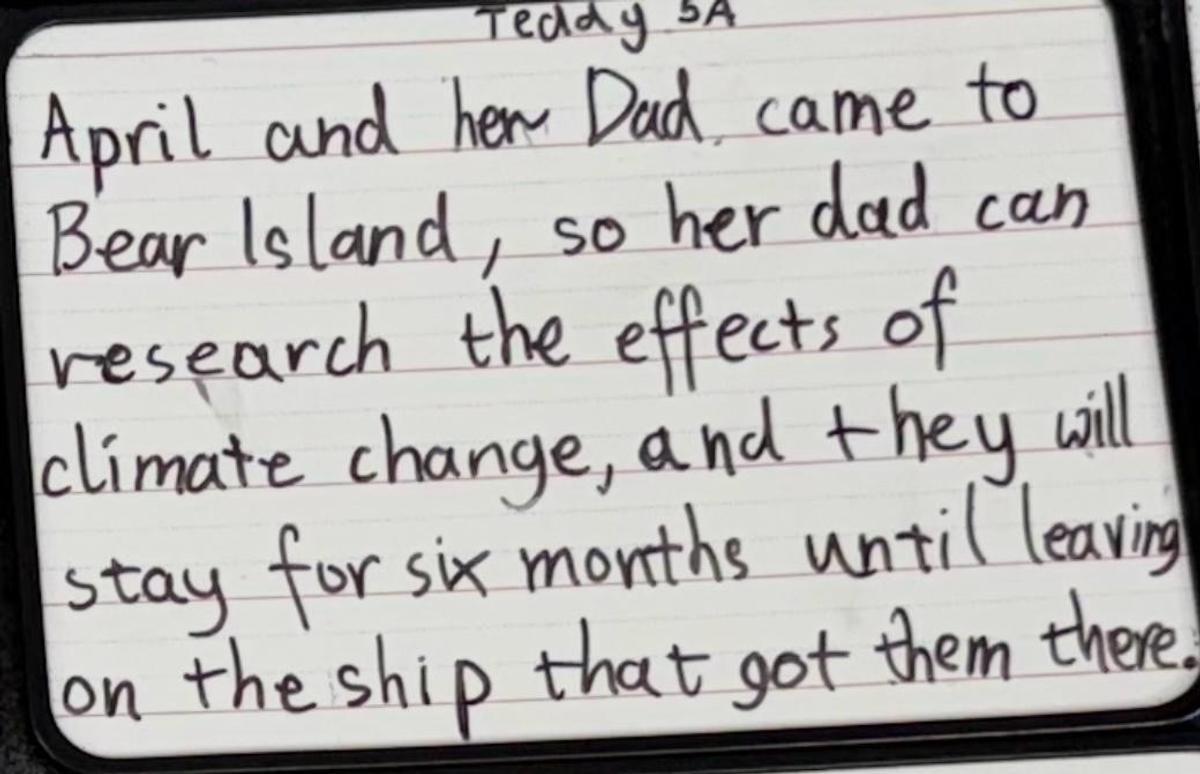 Teddy 5A
April and her Dad came to
Bear Island, so her dad can
research the effects of
climate change, and they will
stay for six months until leaving
on the ship that got them there.